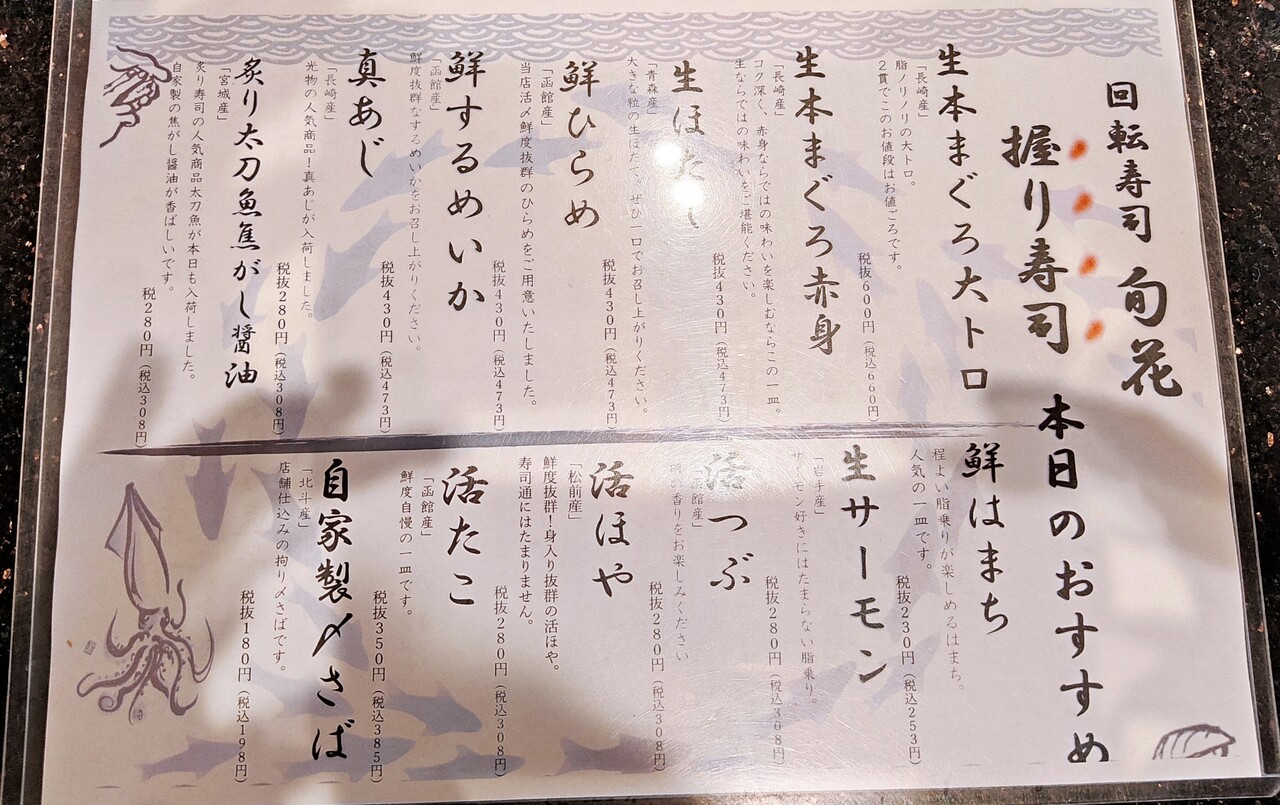 回転寿司 旬花
握り寿司 本日のおすすめ
生本まぐろ大トロ
「長崎産」
脂ノリノリの大トロ。
２貫でこのお値段はお値ごろです。
税抜６００円（税込６６０円）
生本まぐろ赤身
「長崎産」
コク深く、赤身ならではの味わいを楽しむならこの一皿。
生ならではの味わいをご堪能ください。
税抜４３０円（税込４７３円）
生ほたて
「青森産」
大きな粒の生ほたて。ぜひ一口でお召し上がりください。
税抜４３０円（税込４７３円）
鮮ひらめ
「函館産」
当店活〆鮮度抜群のひらめをご用意いたしました。
税抜４３０円（税込４７３円）
鮮するめいか
「函館産」
鮮度抜群なするめいかをお召し上がりください。
税抜４３０円（税込４７３円）
真あじ
「長崎産」
光物の人気商品！真あじが入荷しました。
税抜２８０円（税込３０８円）
炙り太刀魚焦がし醤油
「宮城産」
炙り寿司の人気商品太刀魚が本日も入荷しました。
自家製の焦がし醤油が香ばしいです。
税２８０円（税込３０８円）
鮮はまち
程よい脂乗りが楽しめるはまち。
人気の一皿です。
税抜２３０円（税込２５３円）
生サーモン
「岩手産」
サーモン好きにはたまらない脂乗り。
税抜２８０円（税込３０８円）
活つぶ
「函館産」
磯の香りをお楽しみください
税抜２８０円（税込３０８円）
活ほや
「松前産」
鮮度抜群！身入り抜群の活ほや。
寿司通にはたまりません。
税抜２８０円（税込３０８円）
活たこ
「函館産」
鮮度自慢の一皿です。
税抜３５０円（税込３８５円）
自家製〆さば
「北斗産」
店舗仕込みの拘り〆さばです。
税抜１８０円（税込１９８円）